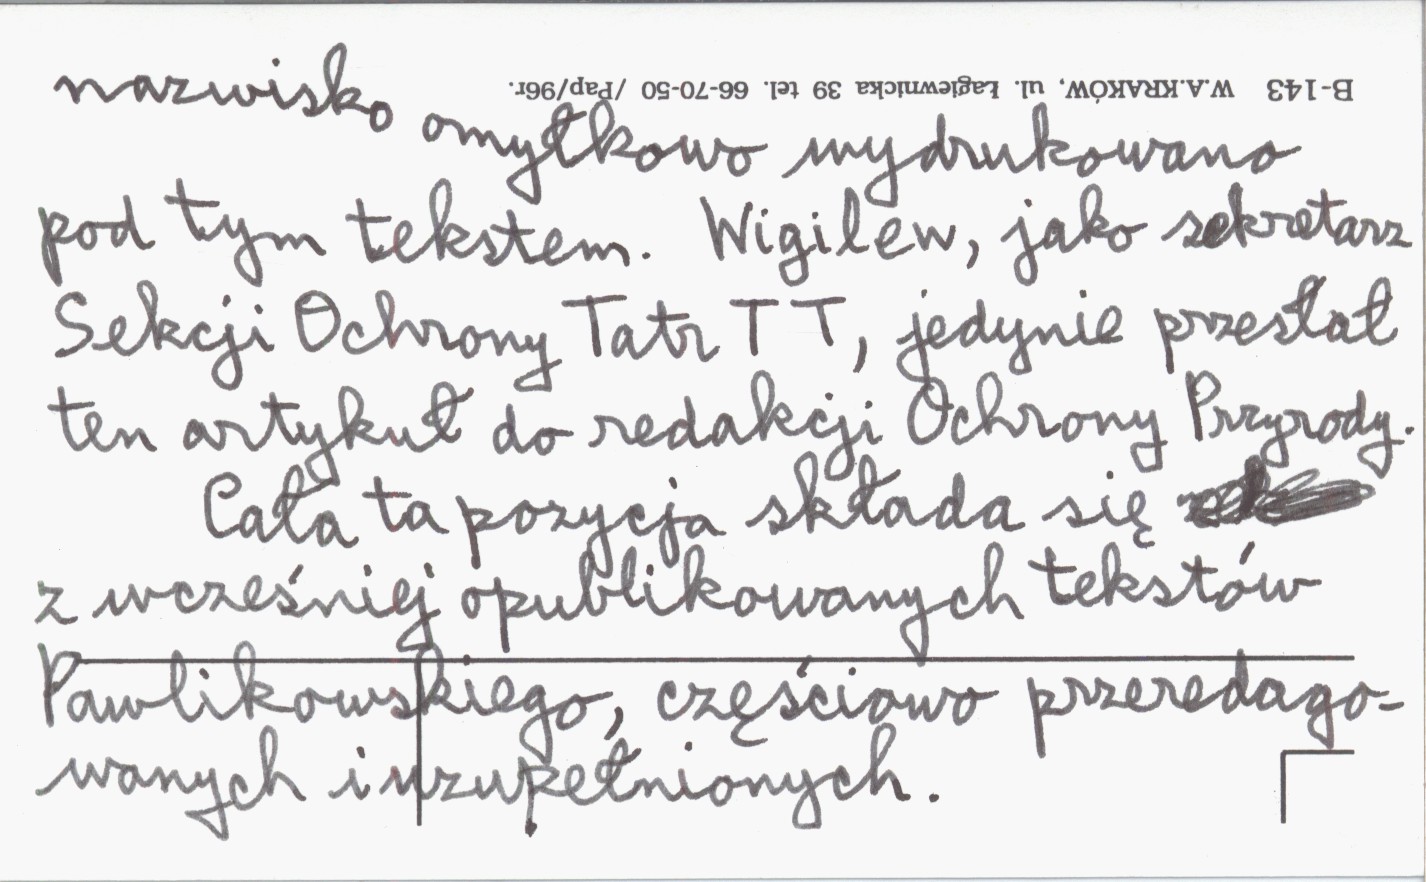 B-143 W.A.KRAKÓW, ul. Łagiewnicka 39 tel. 66-70-50 /Pap/96r.
nazwisko omyłkowo wydrukowano
pod tym tekstem. Wigilew, jako sekretarz
Sekcji Ochrony Tatr TT, jedynie przesłał
ten artykuł do redakcji Ochrony Przyrody.
Cała ta pozycja składa się
z wcześniej opublikowanych tekstów
Pawlikowskiego, częściowo przeredago-
wanych i uzupełnionych.